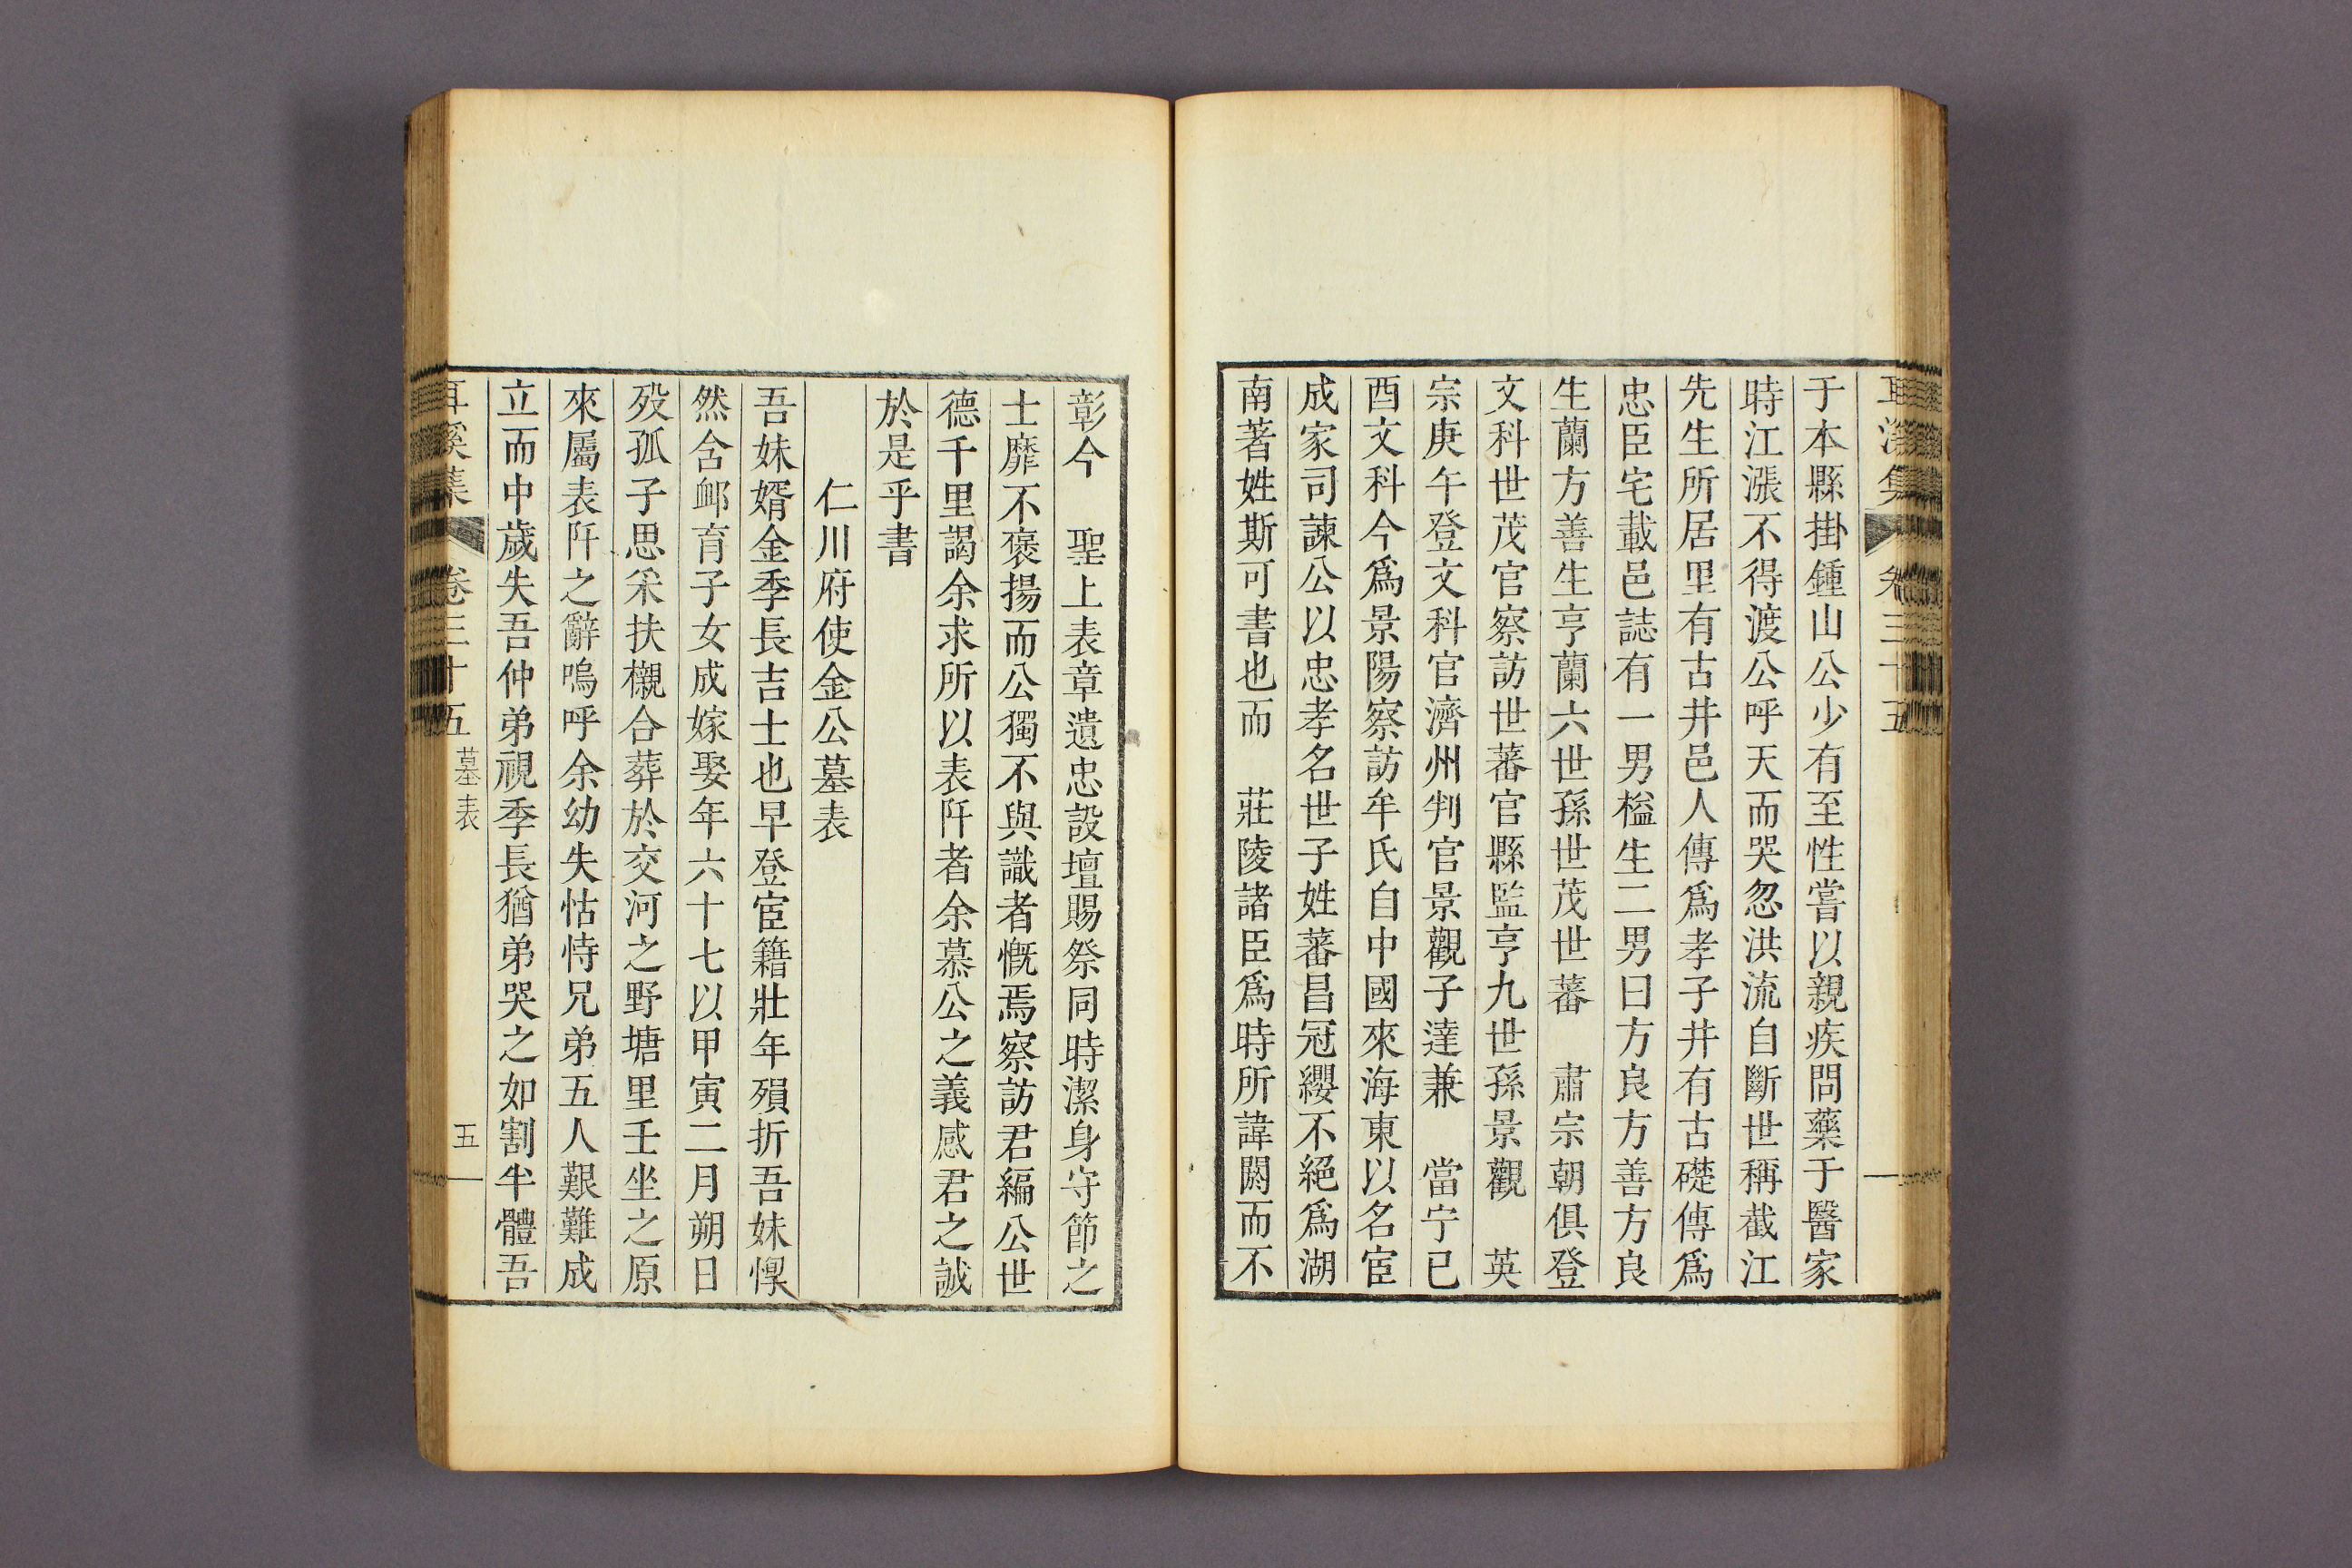 耳溪集 卷三十五
于本縣掛鍾山公少有至性嘗以親疾問藥于醫家
時江漲不得渡公呼天而哭忽洪流自斷世稱截江
先生所居里有古井邑人傳爲孝子井有古礎傳爲
忠臣宅載邑誌有一男㮁生二男曰方良方善方良
生蘭方善生亨蘭六世孫世茂世蕃 肅宗朝俱登
文科世茂官察訪世蕃官縣監亨九世孫景觀 英
宗庚午登文科官濟州判官景觀子達兼 當宁已
酉文科今爲景陽察訪牟氏自中國來海東以名宦
成家司諫公以忠孝名世子姓蕃昌冠纓不絕爲湖
南著姓斯可書也而 莊陵諸臣爲時所諱闕而不
彰今 聖上表章遺忠設壇賜祭同時潔身守節之
士靡不褒揚而公獨不與識者慨焉察訪君編公世
德千里謁余求所以表阡者余慕公之義感君之誠
於是乎書
仁川府使金公墓表
吾妹婿金季長吉士也早登宦籍壯年殞折吾妹惸
然含卹育子女成嫁娶年六十七以甲寅二月朔日
歿孤子思冞扶櫬合葬於交河之野塘里壬坐之原
來屬表阡之辭嗚呼余幼失怙恃兄弟五人艱難成
立而中歲失吾仲弟視季長猶弟哭之如割半體吾
耳溪集 卷三十五 墓表 五